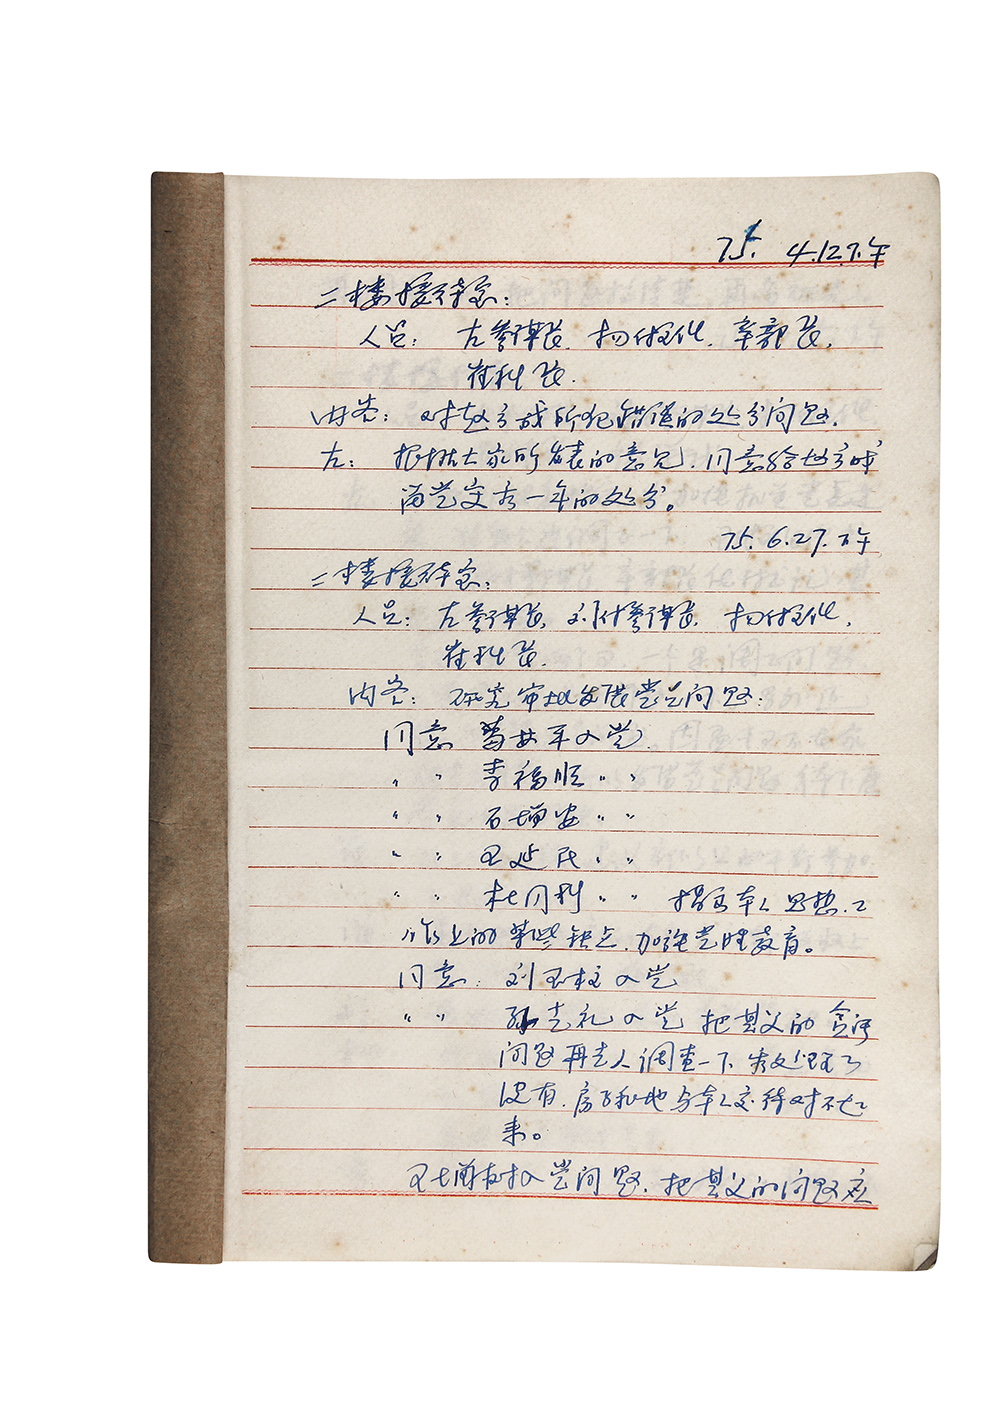 75. 4.12.下午
二楼接待室:
人员: 左参谋长. 主任. 辛部长.
崔科长.
内容: 对赵方成所犯错误的处分问题.
左: 根据大家所发表的意见. 同意给赵方成
留党察看一年的处分。
75. 6.27. 下午
二楼接待室:
人员: 左参谋长, 刘付参谋长. 主任,
崔科长.
内容: 研究审批发展党员问题:
同意 平入党.
〃 〃 李福顺 〃 〃
〃 〃 石增安 〃 〃
〃 〃 王延民 〃 〃
〃 〃 杜同利 〃 〃 指出本人思想.工
作上的某些缺点. 加强党性教育。
同意: 刘玉柱入党
〃 〃 孙克礼入党 把其父的贪污
问题再去人调查一下. 处理了
没有. 房子和地与本人交待对不起
来。
王增友入党问题. 把其父的问题应